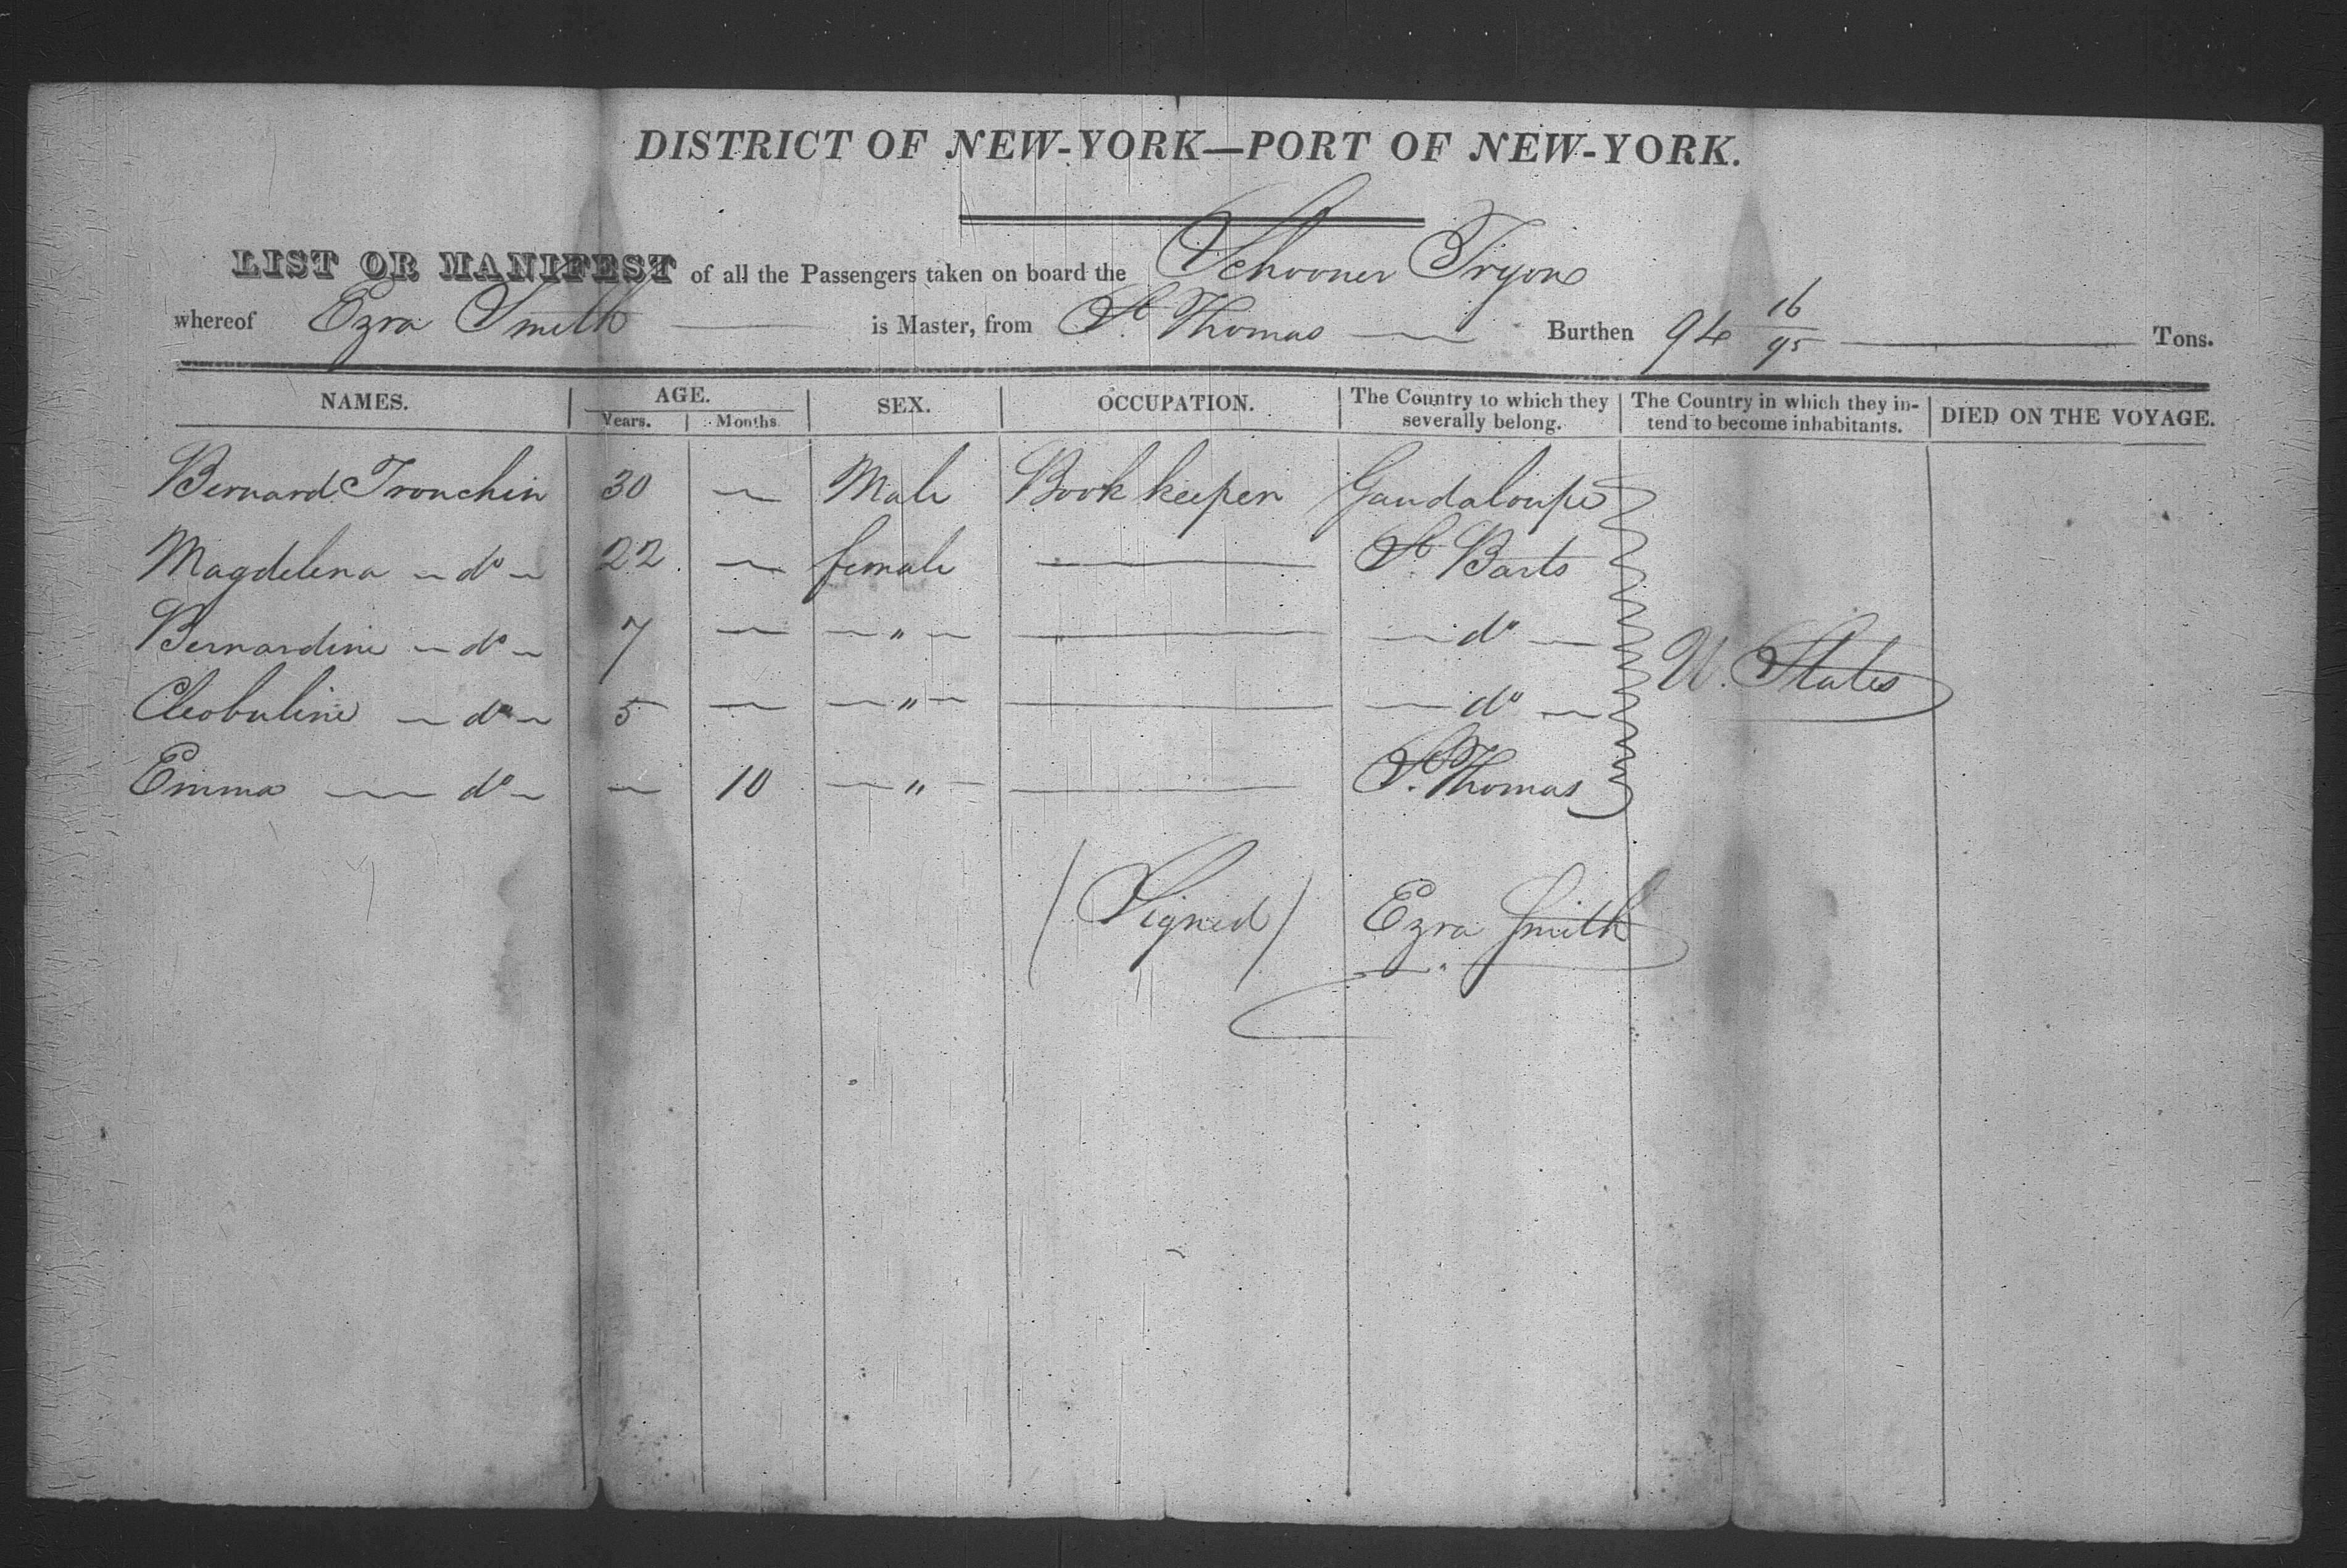 DISTRICT OF NEW-YORK—PORT OF NEW-YORK.
LIST OR MANIFEST of all the Passengers taken on board the Schooner Tryon
whereof Ezra Smith is Master, from St. Thomas Burthen 94 16/95 Tons.
NAMES. AGE. Years. Months. SEX. OCCUPATION. The Country to which they severally belong. The Country in which they intend to become inhabitants. DIED ON THE VOYAGE.
Bernard Tronchin 30 — Male Book keeper Gaudaloupe
Magdelena — do — 22 — female — St. Barts
Bernardine — do — 7 — — " — — — do —
U. States
Cleobuline — do — 5 — — " — — — do —
Emma — do — — 10 — " — — St. Thomas
(Signed) Ezra Smith